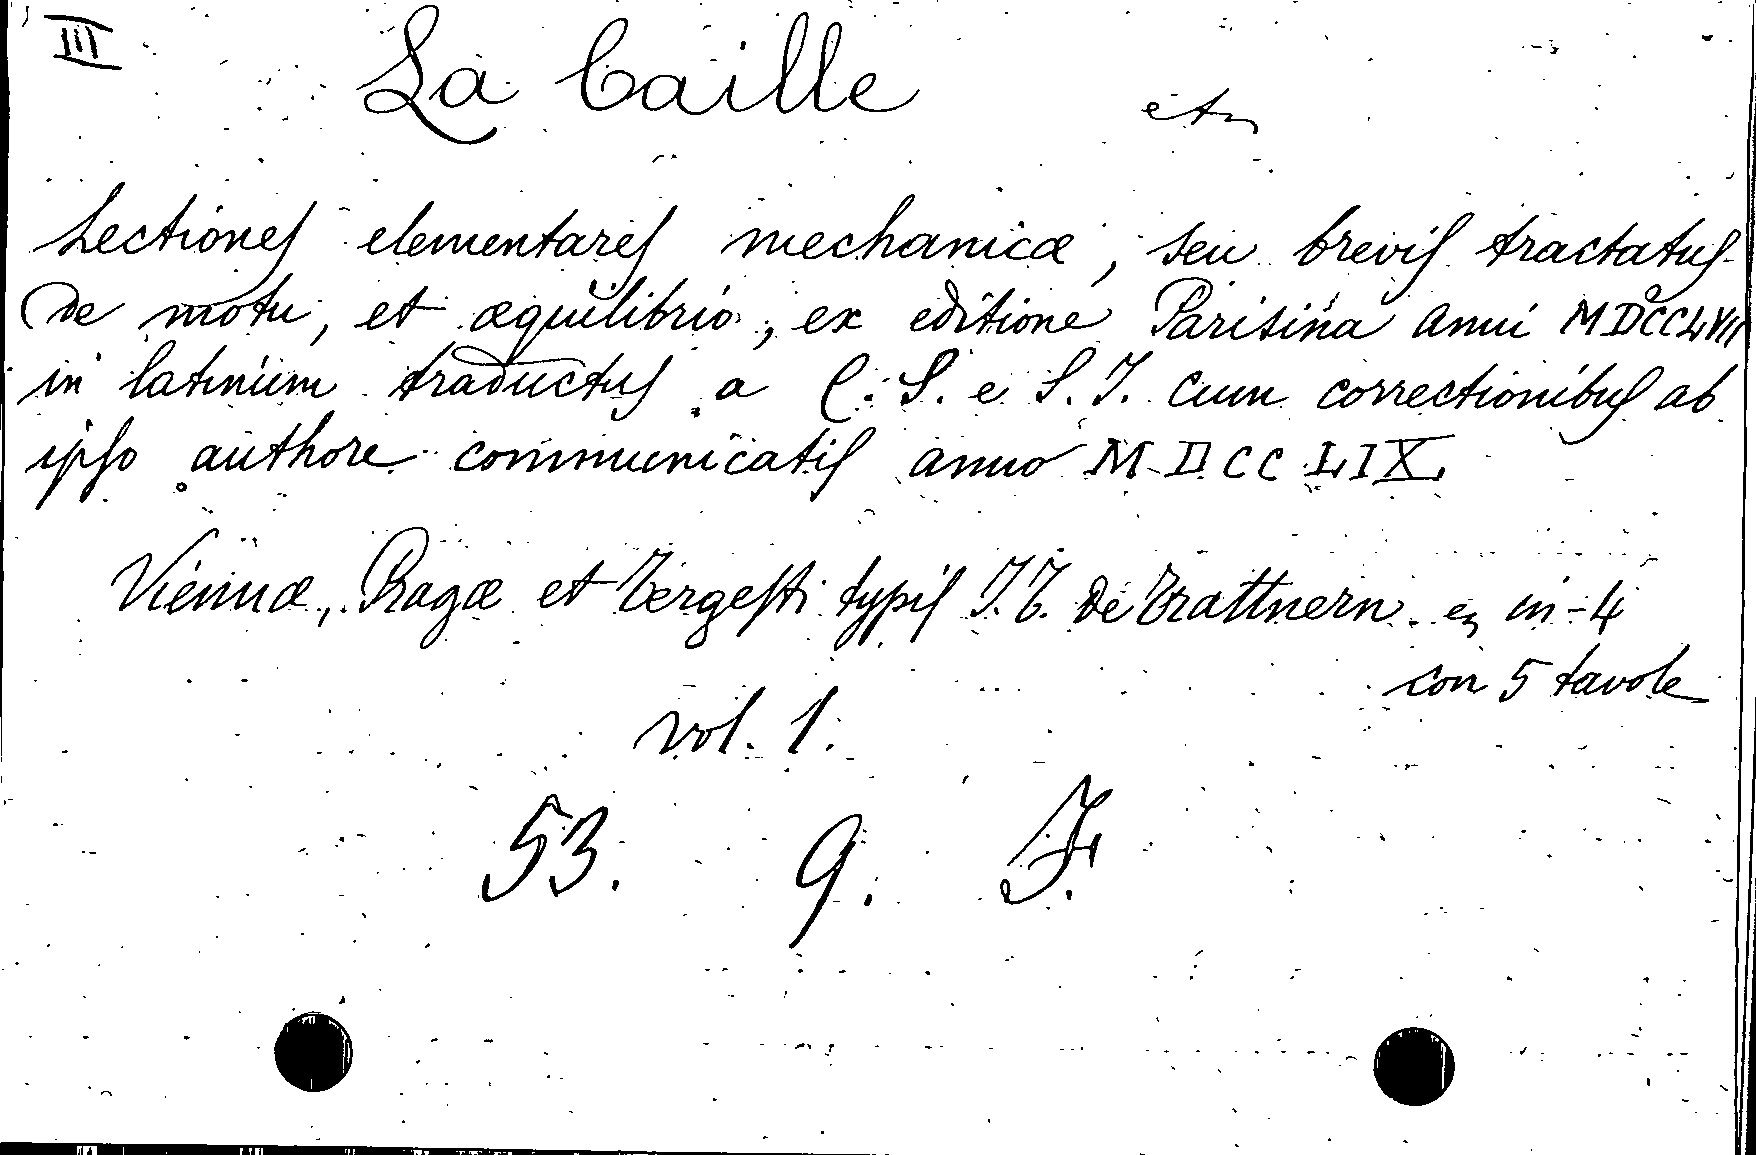 III
La Caille
Lectiones elementares mechanicæ, seu brevis tractatus
de motu, et æquilibrio, ex editione Parisina anni MDCCLVII
in latinum traductus a C. S. e S. J. cum correctionibus ab
ipso authore communicatis anno MDCCLIX.
Viennæ, Pragæ et Tergesti typis J. T. de Trattnern. in-4
con 5 tavole
vol. 1.
53. 9. F.